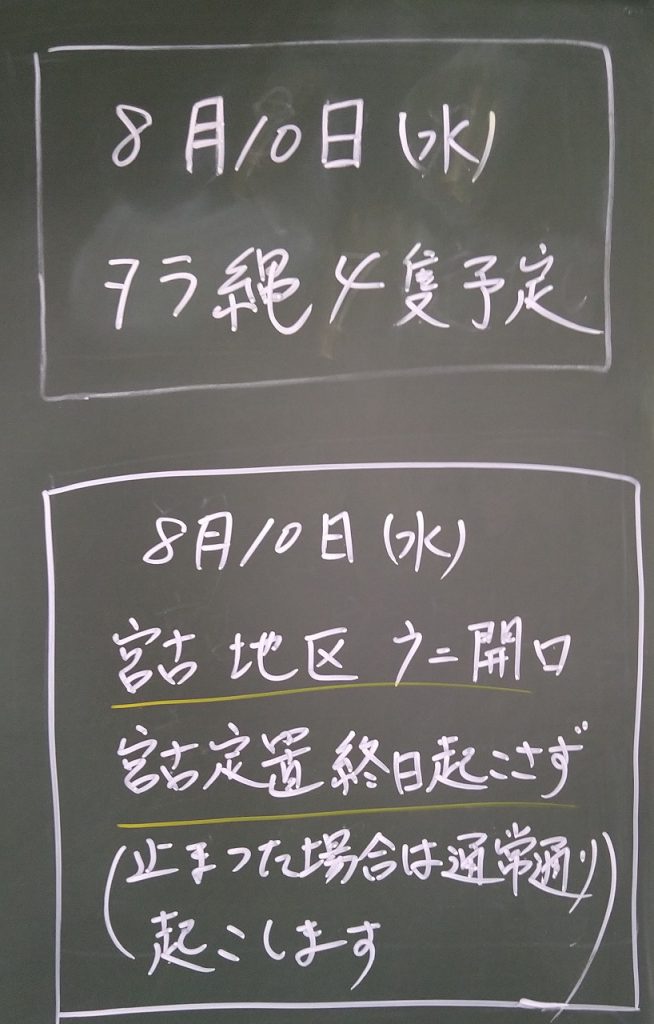 8月10日(水)
タラ縄4隻予定
8月10日(水)
宮古地区 ウニ開口
宮古定置終日起こさず
(止まった場合は通常通り
起こします)